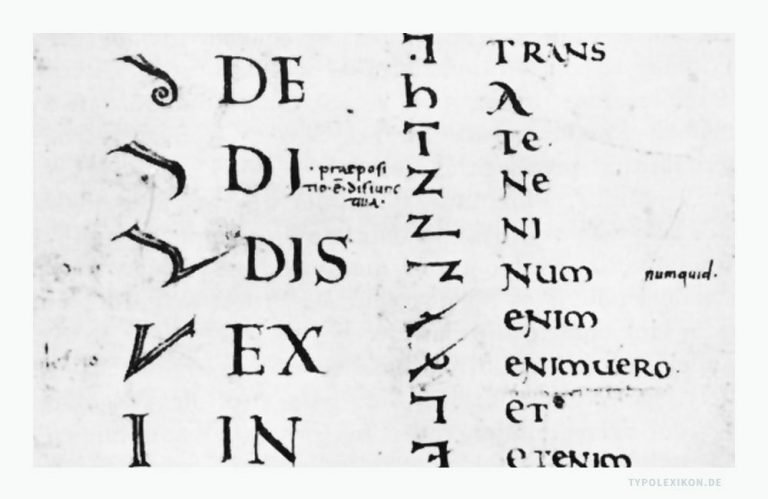 DE
DI ·praeposi
tio·ē·disiunc
tiua·
DIS
EX
IN
TRANS
A
Te·
Ne
NI
Num numquid·
eNIm
eNImueRo
eT
eTeNIm
TYPOLEXIKON.DE